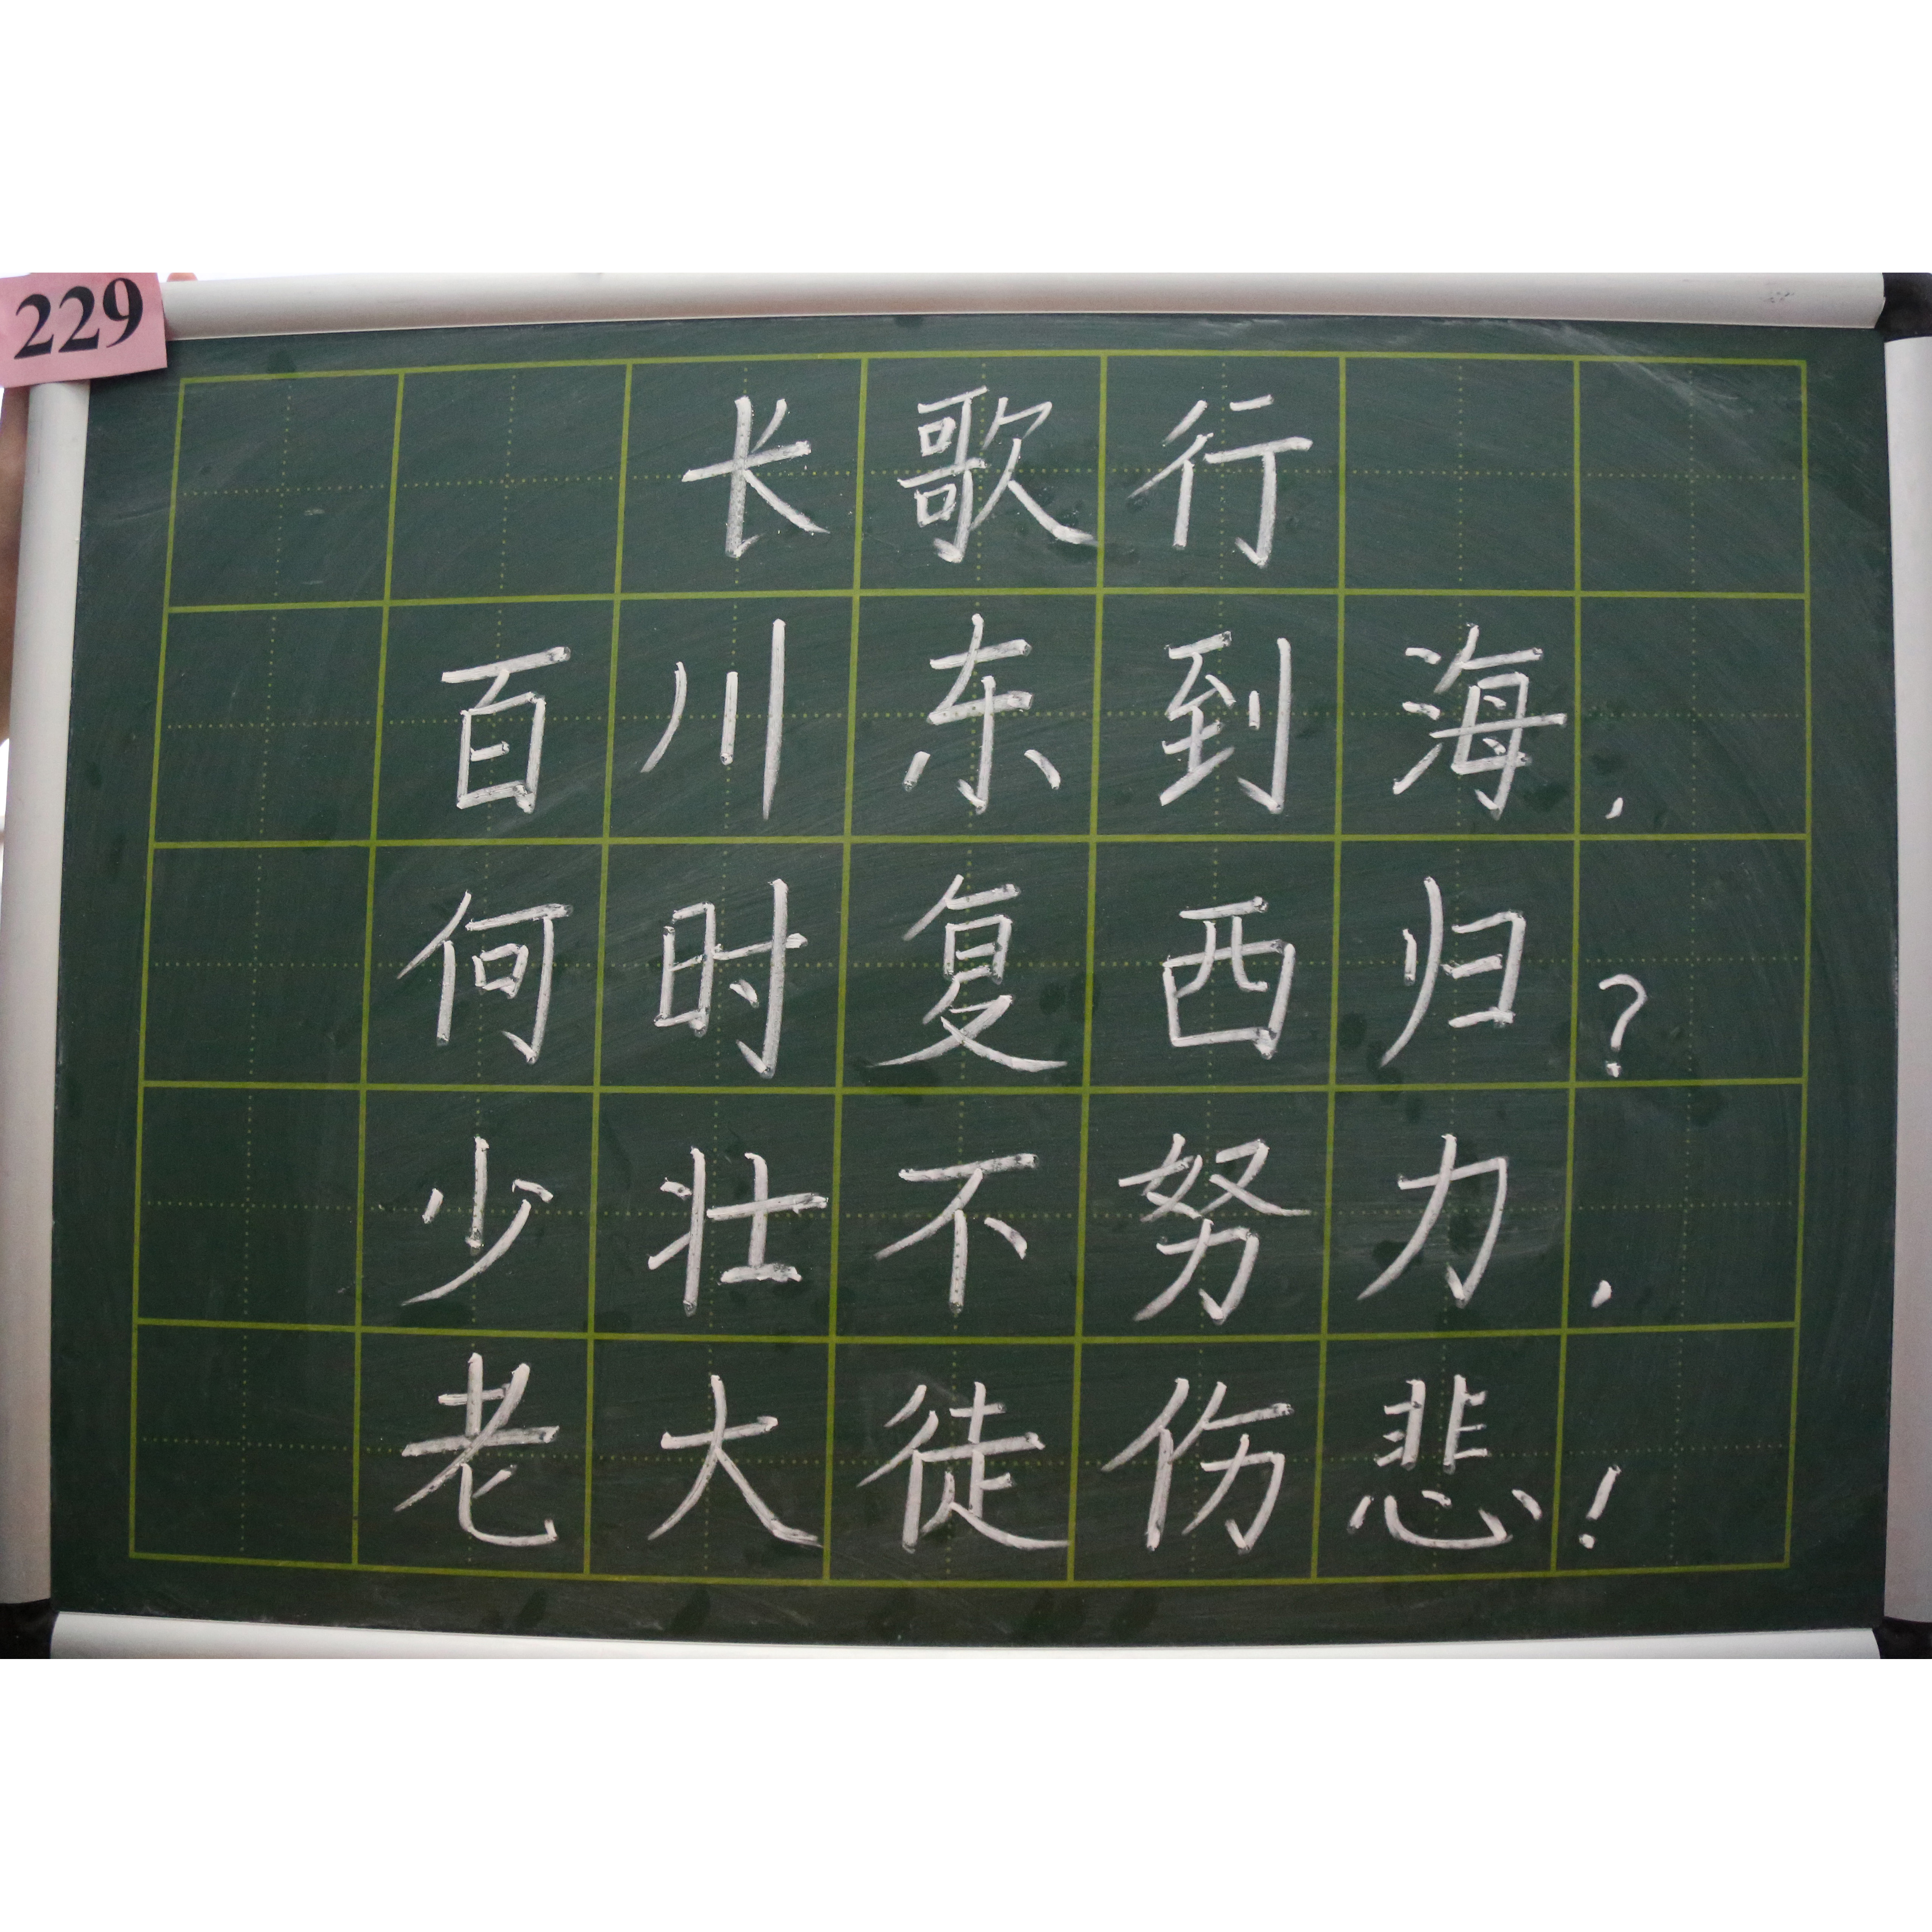 229
长歌行
百川东到海,
何时复西归?
少壮不努力,
老大徒伤悲!